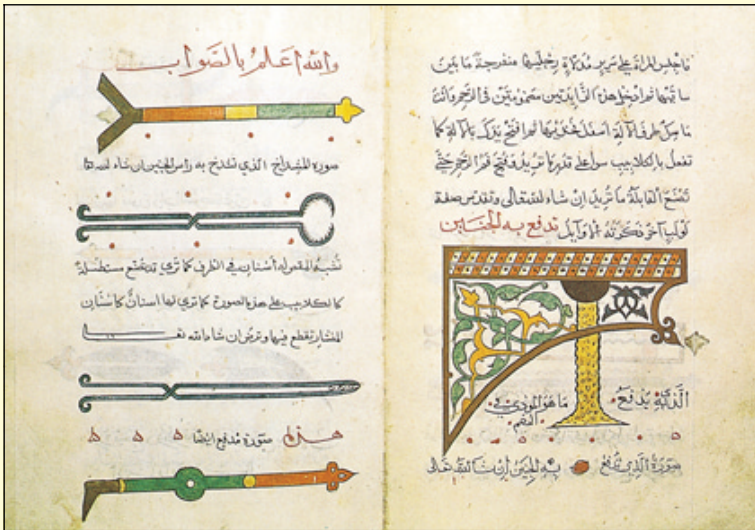 فاجلس المراة على سرير مدلاة رجليها منفرجة ما بين
ساقيها ثم ادخل هذه الزايدتين مضمومتين في الرحم وانت
ماسك طرف الالة اسفل فخذيها ثم افتح يدك بالالة كما
تفعل بالكلاليب سوا على قدر ما تريد وفتح فم الرحم حتى
تصنع القابلة ما تريد ان شاء الله تعالى وتقدس صفة
لولب آخر ذكرته الاوايل تدفع به الجنين
يدفع ما هو
صورة الذي تدفع به الجنين ان شا الله تعالى
والله اعلم بالصواب
صورة المشداخ الذي تشدخ به راس الجنين ان شاء الله تعا
تشبه المقص له اسنان في الطرف كما ترى وقد يصنع مستطيلة
كالكلاليب على هذه الصورة كما ترى لها اسنان كاسنان
المنشار يقطع فيها وترض ان شاء الله تعا
هذه صورة مدفع ايضا